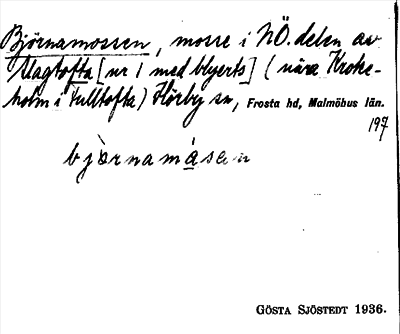 Björnamossen, mosse i NÖ. delen av
Slagtofta [nr 1 med blyerts] (nära Kroke-
holm i Fulltofta) Hörby sn, Frosta hd, Malmöhus län.
197
bjòrnamåsen
GÖSTA SJÖSTEDT 1936.